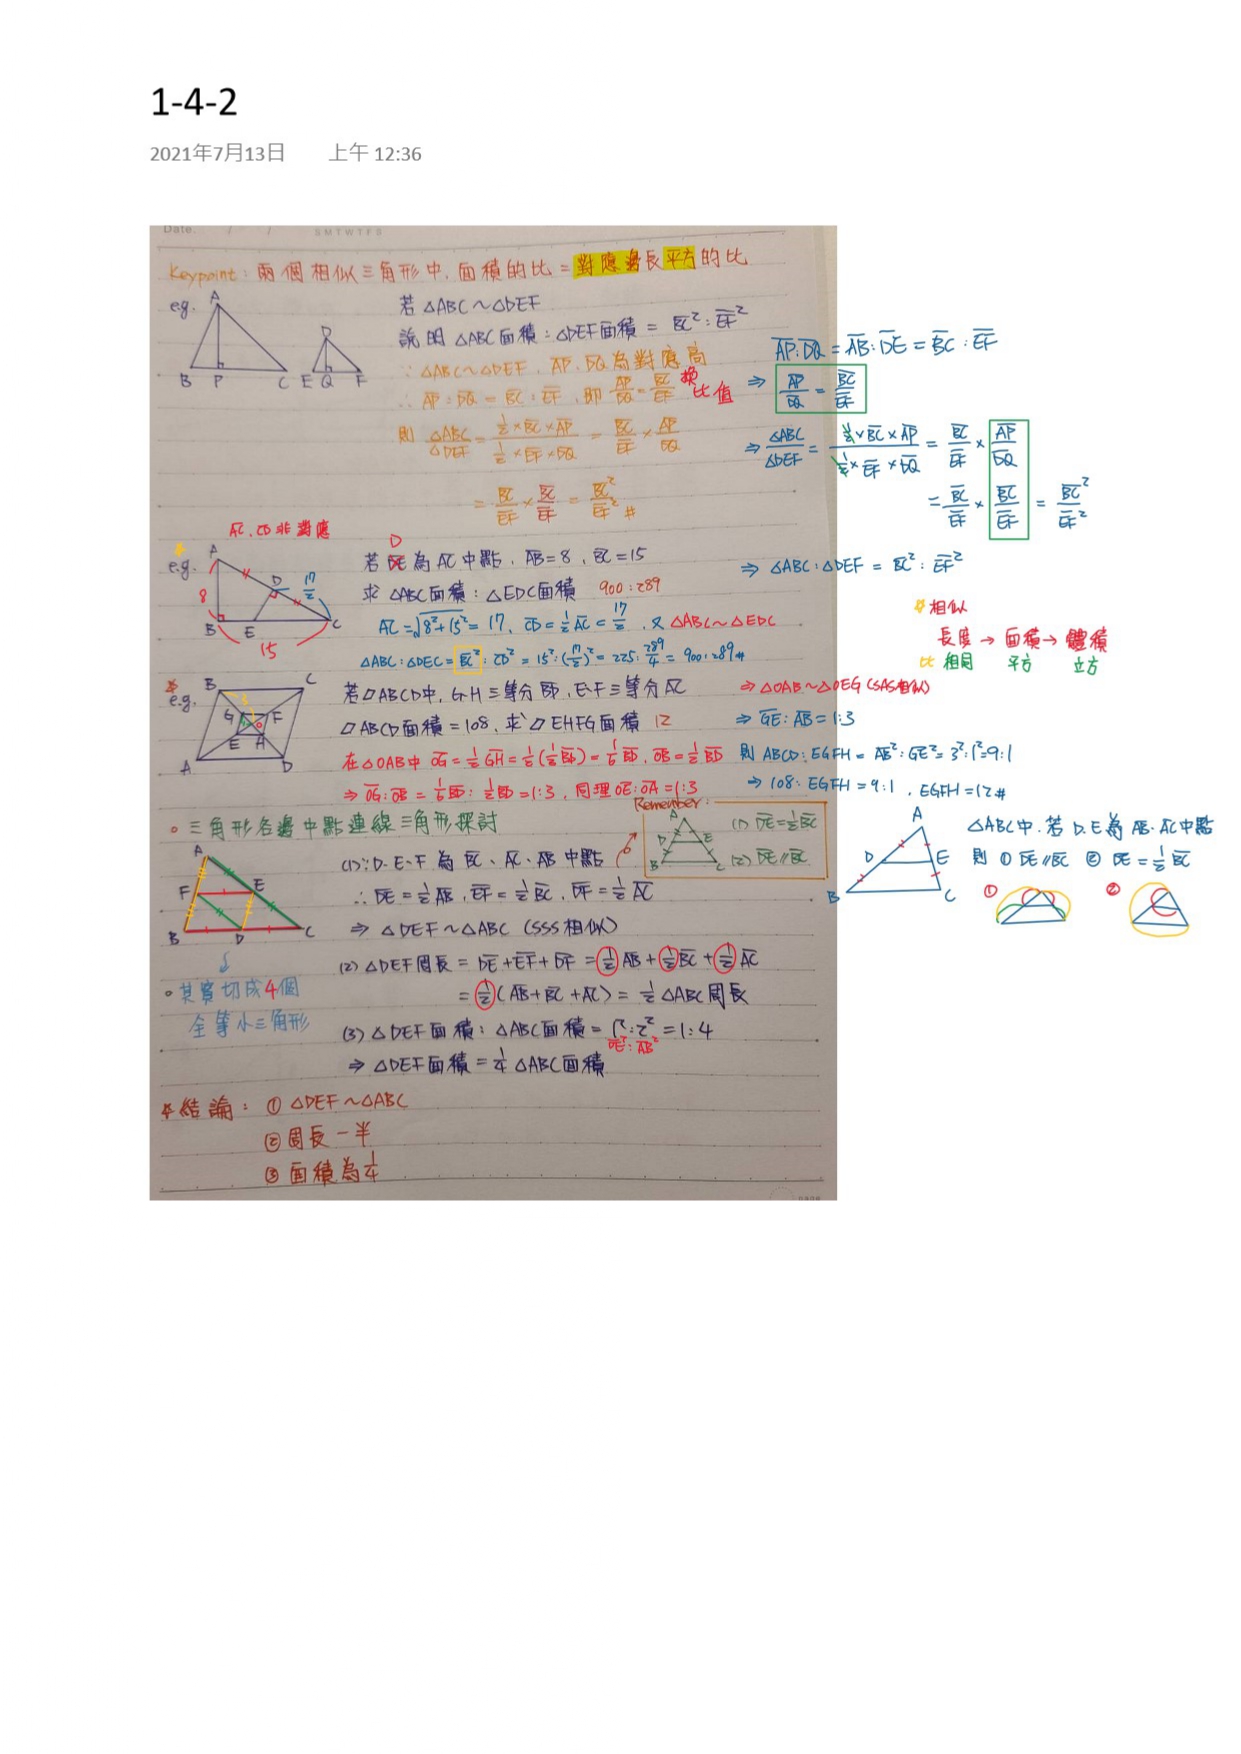 1-4-2
2021年7月13日 上午 12:36
Date. / /
S M T W T F S
Keypoint: 兩個相似三角形中, 面積的比 = 對應邊長平方的比
e.g.
A
B P C
D
E Q F
若 △ABC ~ △DEF
說明 △ABC面積 : △DEF面積 = BC² : EF²
∵ △ABC ~ △DEF, AP、DQ 為對應高
∴ AP : DQ = BC : EF, 即 AP/DQ = BC/EF 換比值
則 △ABC/△DEF = (1/2 × BC × AP)/(1/2 × EF × DQ) = BC/EF × AP/DQ
= BC/EF × BC/EF = BC²/EF² #
AP : DQ = AB : DE = BC : EF
⇒ AP/DQ = BC/EF
⇒ △ABC/△DEF = (1/2 × BC × AP)/(1/2 × EF × DQ) = BC/EF × AP/DQ
= BC/EF × BC/EF = BC²/EF²
⇒ △ABC : △DEF = BC² : EF²
AC、CD非對應
e.g.
A
D 17/2
8
B E C
15
若 D 為 AC 中點, AB = 8, BC = 15
求 △ABC面積 : △EDC面積 900 : 289
AC = √8²+15² = 17, CD = 1/2 AC = 17/2, 又 △ABC ~ △EDC
△ABC : △DEC = BC² : CD² = 15² : (17/2)² = 225 : 289/4 = 900 : 289 #
相似
長度 → 面積 → 體積
比 相同 平方 立方
e.g.
B C
3
G F
1 O
E H
A D
若▱ABCD中, G、H三等分BD, E、F三等分AC
▱ABCD面積 = 108, 求▱EHFG面積 12
在△OAB中 OG = 1/2 GH = 1/2 (1/3 BD) = 1/6 BD, OB = 1/2 BD
⇒ OG : OB = 1/6 BD : 1/2 BD = 1 : 3, 同理 OE : OA = 1 : 3
⇒ △OAB ~ △OEG (SAS相似)
⇒ GE : AB = 1 : 3
則 ABCD : EGFH = AB² : GE² = 3² : 1² = 9 : 1
⇒ 108 : EGFH = 9 : 1, EGFH = 12 #
。三角形各邊中點連線三角形探討
A
F E
B D C
(1) ∵ D、E、F 為 BC、AC、AB 中點
∴ DE = 1/2 AB, EF = 1/2 BC, DF = 1/2 AC
⇒ △DEF ~ △ABC (SSS相似)
Remember:
A
D E
B C
(1) DE = 1/2 BC
(2) DE // BC
A
D E
B C
△ABC中, 若 D、E 為 AB、AC中點
則 ① DE // BC ② DE = 1/2 BC
① ②
(2) △DEF周長 = DE + EF + DF = 1/2 AB + 1/2 BC + 1/2 AC
= 1/2 (AB + BC + AC) = 1/2 △ABC周長
。其實切成4個
全等小三角形
(3) △DEF面積 : △ABC面積 = 1² : 2² = 1 : 4
DE² : AB²
⇒ △DEF面積 = 1/4 △ABC面積
結論: ① △DEF ~ △ABC
② 周長一半
③ 面積為 1/4